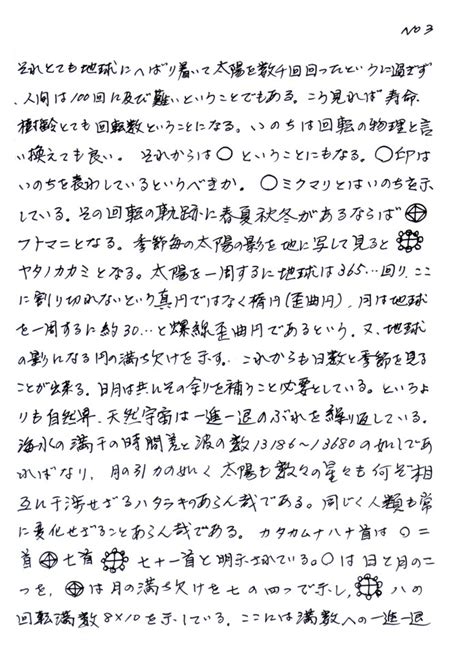 No 3
それとても地球にへばり着いて太陽を数千回回ったというに過ぎず
、人間は100回に及び難いということでもある。こう見れば寿命、
とても回転数ということになる。いのちは回転の物理と言
い換えても良い。それからは〇ということにもなる。〇印は
いのちを表わしているというべきか。〇ミクマリとはいのちを示
している。その回転の軌跡に春夏秋冬があるならば
フトマニとなる。季節毎の太陽の影を地に写して見ると
ヤタノカカミとなる。太陽を一周するに地球は365…回り、ここ
に割り切れないという真円ではなく楕円(歪曲円)、月は地球
を一周するに約30…と螺線歪曲円であるという。又、地球
の影になる円の満ち欠けを示す。これからも日数と季節を見る
ことが出来る。日月は共にその余りを補うこと必要としている。というよ
りも自然界、天然宇宙は一進一退のぶれを繰り返している。
海水の満干の時間差と波の数13186～13680の如しであ
ればなり、月の引力の如く太陽も数々の星々も何ぞ相
互に干渉せざるハタラキのあらん哉である。同じく人類も常
に変化せざることあらん哉である。カタカムナ八十首は〇二
首 七首 七十一首と明示されている。〇は日と月の二
つを、 は月の満ち欠けを七の四つで示し、 八の
回転満数8×10を示している。ここには満数への一進一退